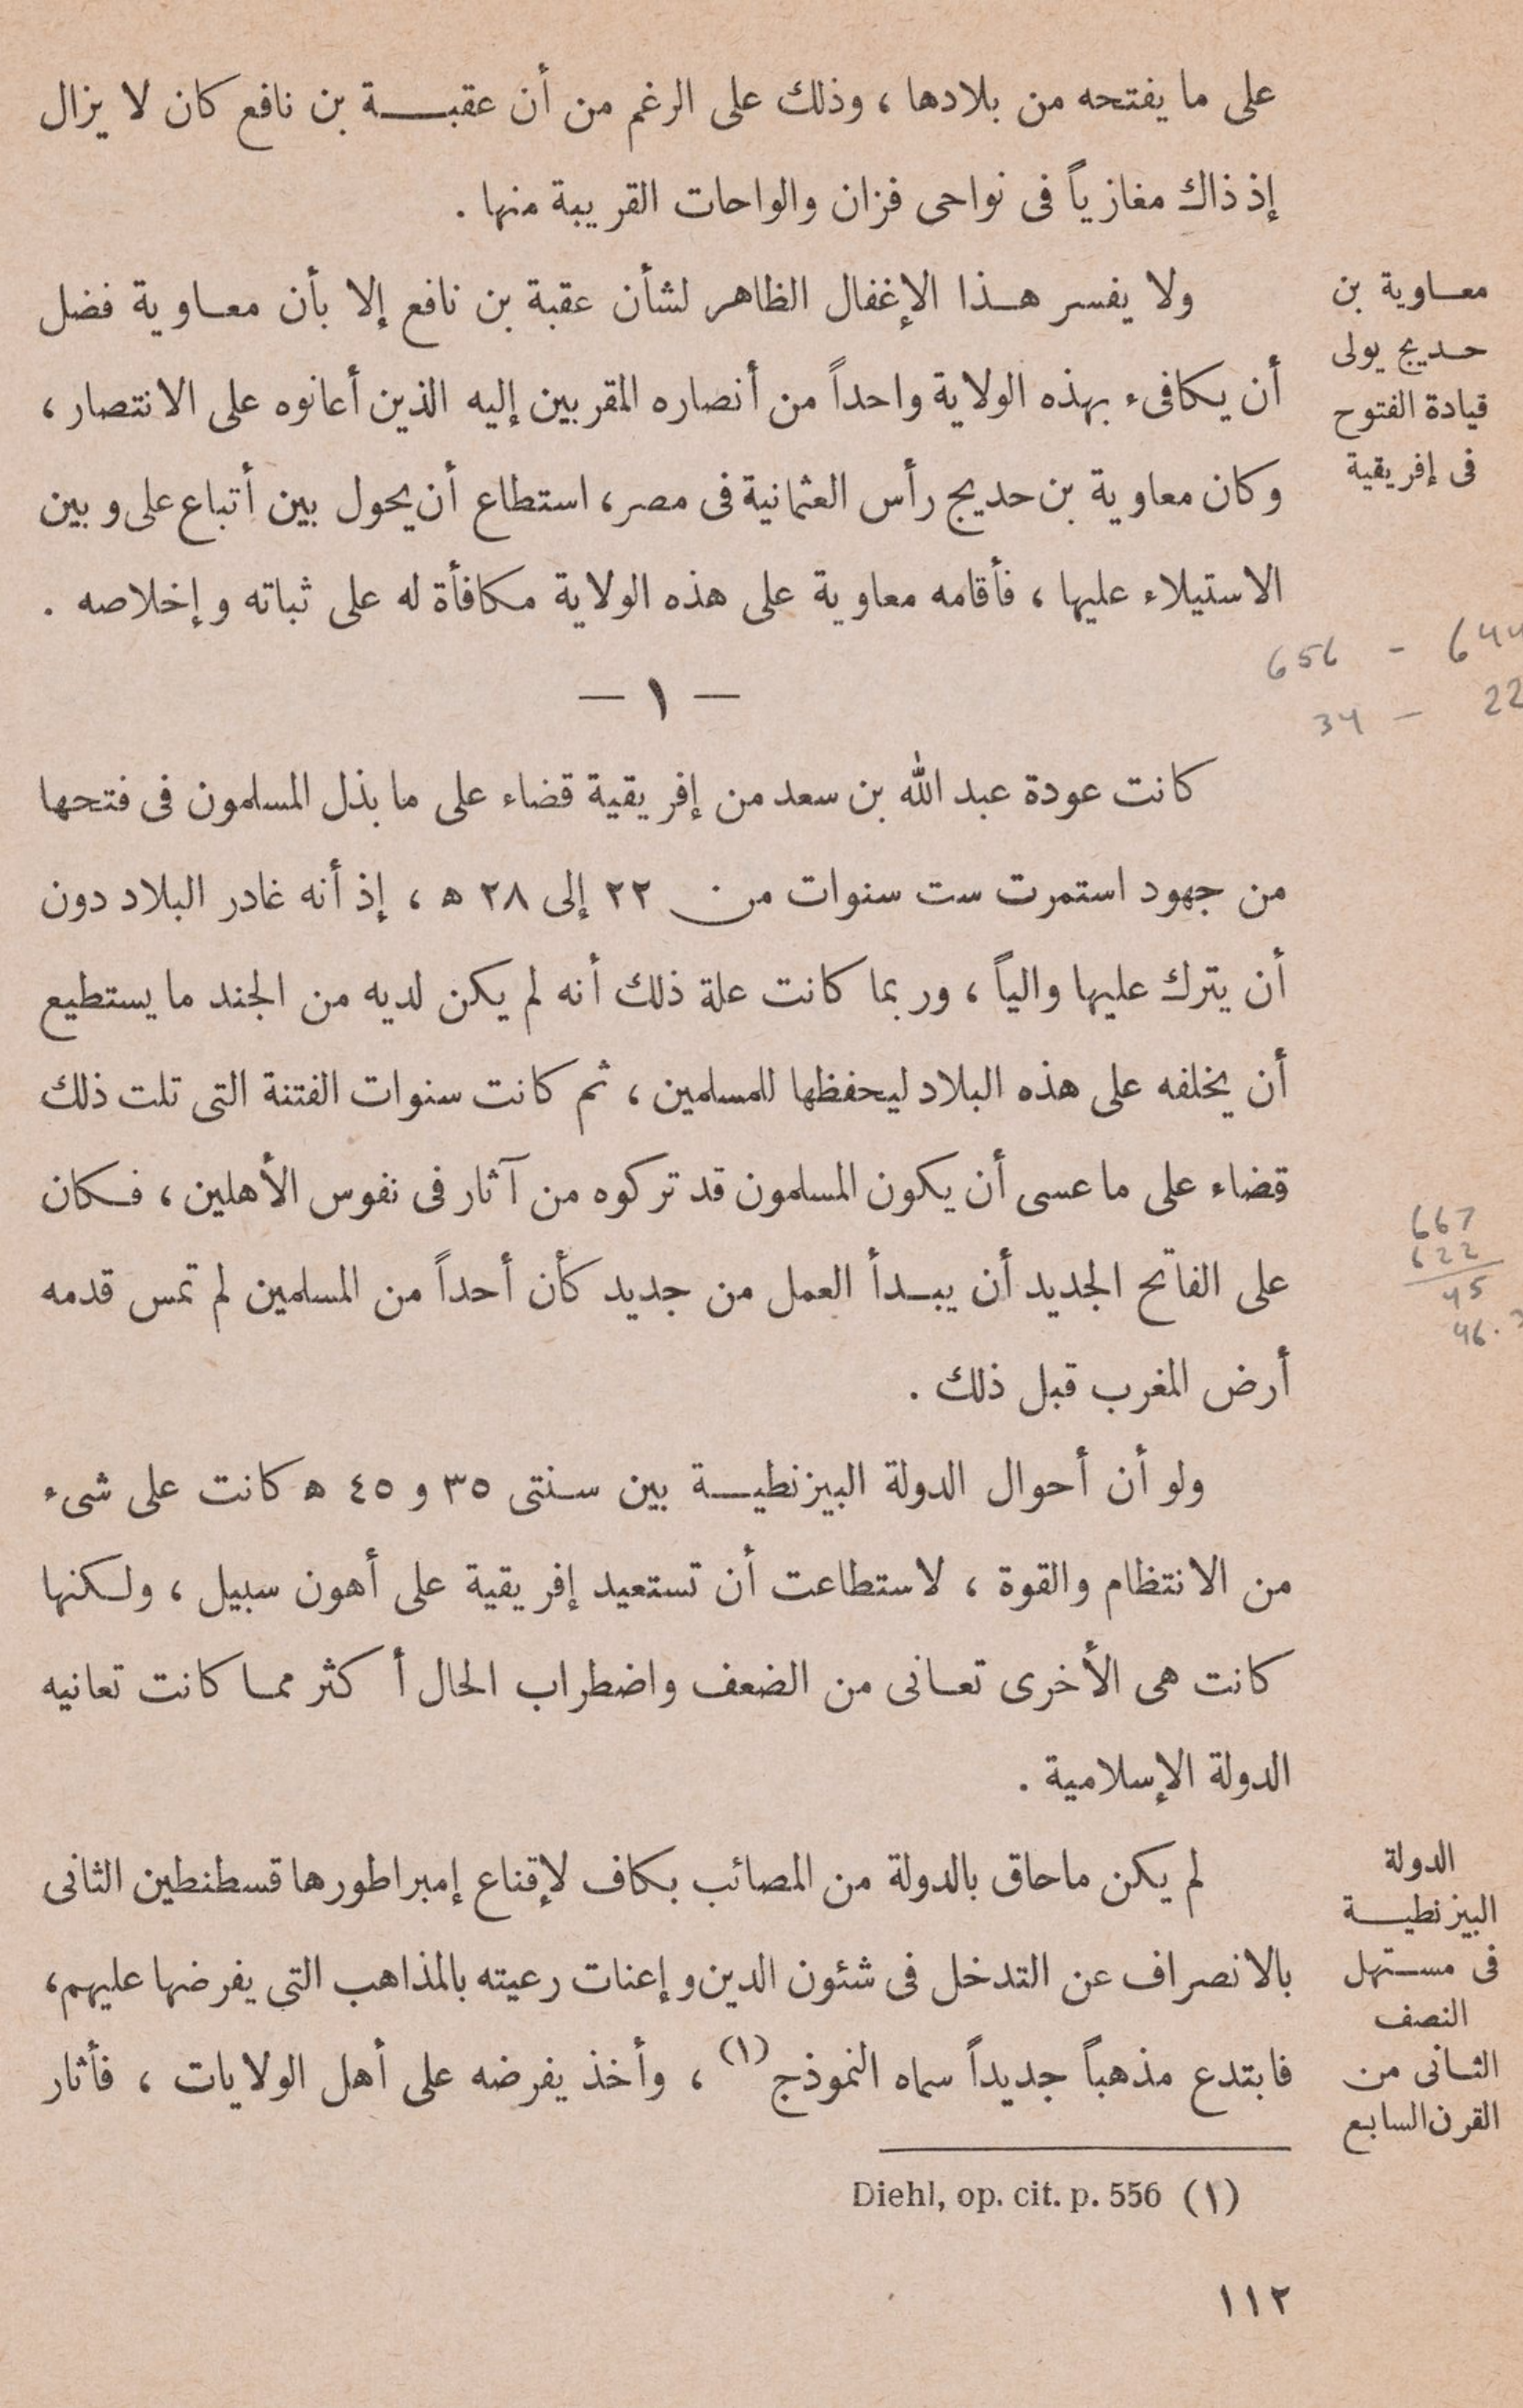 على ما يفتحه من بلادها ، وذلك على الرغم من أن عقبة بن نافع كان لا يزال
إذ ذاك مغازياً فى نواحى فزان والواحات القريبة منها .
معاوية بن
حديج يولى
قيادة الفتوح
فى إفريقية
ولا يفسر هذا الإغفال الظاهر لشأن عقبة بن نافع إلا بأن معاوية فضل
أن يكافىء بهذه الولاية واحداً من أنصاره المقربين إليه الذين أعانوه على الانتصار ،
وكان معاوية بن حديج رأس العثمانية فى مصر ، استطاع أن يحول بين أتباع على وبين
الاستيلاء عليها ، فأقامه معاوية على هذه الولاية مكافأة له على ثباته وإخلاصه .
656 - 644
34 - 22
— ١ —
كانت عودة عبد الله بن سعد من إفريقية قضاء على ما بذل المسلمون فى فتحها
من جهود استمرت ست سنوات من ٢٢ إلى ٢٨ ه ، إذ أنه غادر البلاد دون
أن يترك عليها والياً ، وربما كانت علة ذلك أنه لم يكن لديه من الجند ما يستطيع
أن يخلفه على هذه البلاد ليحفظها للمسلمين ، ثم كانت سنوات الفتنة التى تلت ذلك
قضاء على ما عسى أن يكون المسلمون قد تركوه من آثار فى نفوس الأهلين ، فكان
على الفاتح الجديد أن يبدأ العمل من جديد كأن أحداً من المسلمين لم تمس قدمه
أرض المغرب قبل ذلك .
667
622
45
46.
ولو أن أحوال الدولة البيزنطية بين سنتى ٣٥ و ٤٥ ه كانت على شىء
من الانتظام والقوة ، لاستطاعت أن تستعيد إفريقية على أهون سبيل ، ولكنها
كانت هى الأخرى تعانى من الضعف واضطراب الحال أكثر مما كانت تعانيه
الدولة الإسلامية .
الدولة
البيزنطية
فى مستهل
النصف
الثانى من
القرن السابع
لم يكن ماحاق بالدولة من المصائب بكاف لإقناع إمبراطورها قسطنطين الثانى
بالانصراف عن التدخل فى شئون الدين وإعنات رعيته بالمذاهب التى يفرضها عليهم ،
فابتدع مذهباً جديداً سماه النموذج (١) ، وأخذ يفرضه على أهل الولايات ، فأثار
(١) Diehl, op. cit. p. 556
١١٢